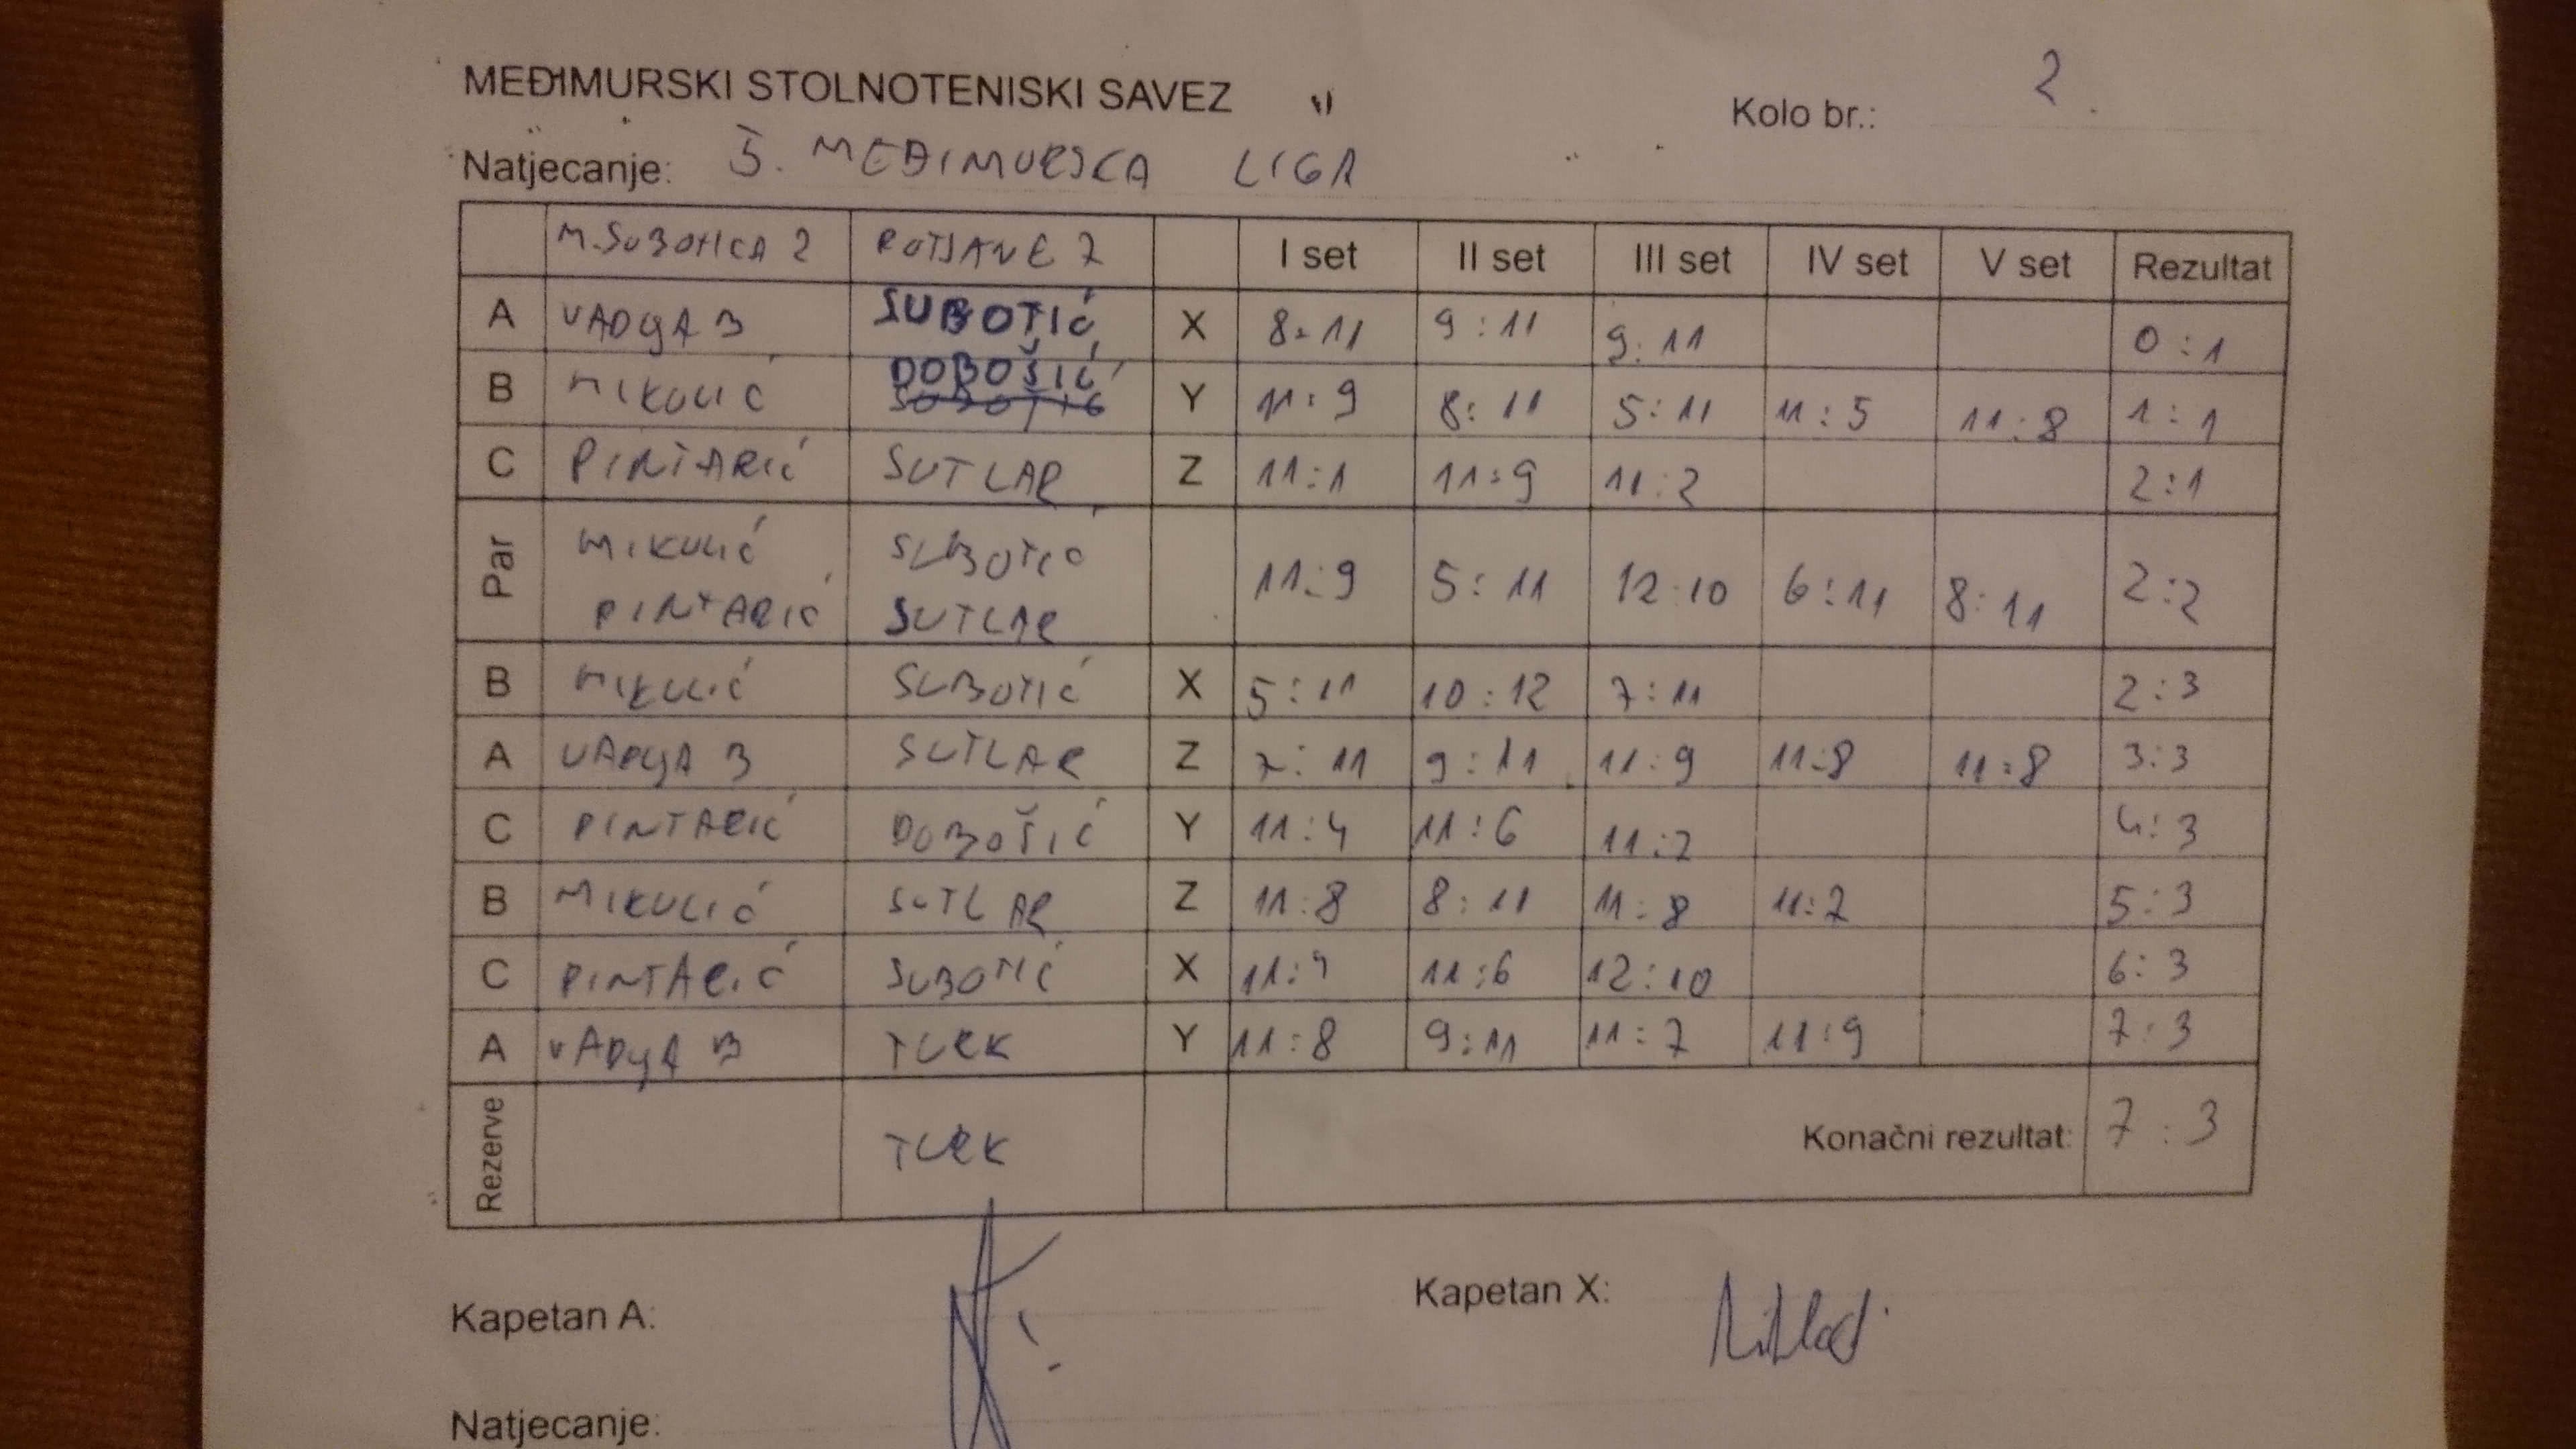 MEĐIMURSKI STOLNOTENISKI SAVEZ
Kolo br.: 2.
Natjecanje: 3. MEĐIMURSKA LIGA
M.SUBOTICA 2 ROTJANE 7 I set II set III set IV set V set Rezultat
A VADLJA B SUBOTIĆ X 8:11 9:11 9:11 0:1
B MIKULIĆ DOBOŠIĆ Y 11:9 8:11 5:11 11:5 11:8 1:1
SUBOTIĆ
C PINTARIĆ SUTLAR Z 11:1 11:9 11:2 2:1
Par MIKULIĆ SUBOTIĆ 11:9 5:11 12:10 6:11 8:11 2:2
PINTARIĆ SUTLAR
B MIKULIĆ SUBOTIĆ X 5:11 10:12 7:11 2:3
A VADLJA B SUTLAR Z 7:11 9:11 11:9 11:8 11:8 3:3
C PINTARIĆ DOBOŠIĆ Y 11:4 11:6 11:2 4:3
B MIKULIĆ SUTLAR Z 11:8 8:11 11:8 11:2 5:3
C PINTARIĆ SUBOTIĆ X 11:4 11:6 12:10 6:3
A VADLJA B TURK Y 11:8 9:11 11:7 11:9 7:3
Rezerve TURK Konačni rezultat: 7:3
Kapetan A: Kapetan X:
Natjecanje: